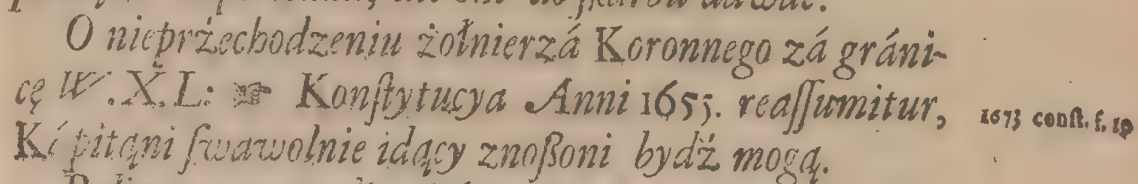 O nieprżechodzeniu żołnierzá Koronnego zá gráni-
cę W.X.L: ☞ Konſtytucya Anni 1655. reaſſumitur,
1673 conſt. f. 19
Kápitąni ſwawolnie idący znoßoni bydź mogą.